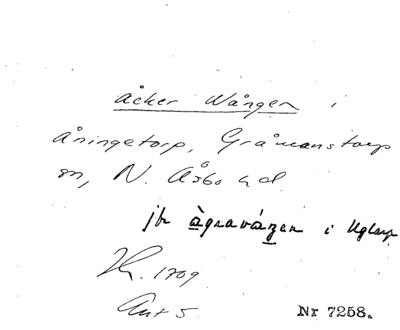 Åcker Wången i
Åningetorp, Gråmanstorps
sn, N. Åsbo hd.
jfr àgravázen i Uglarp
Lk. 1709
Ant 5
Nr 7258.